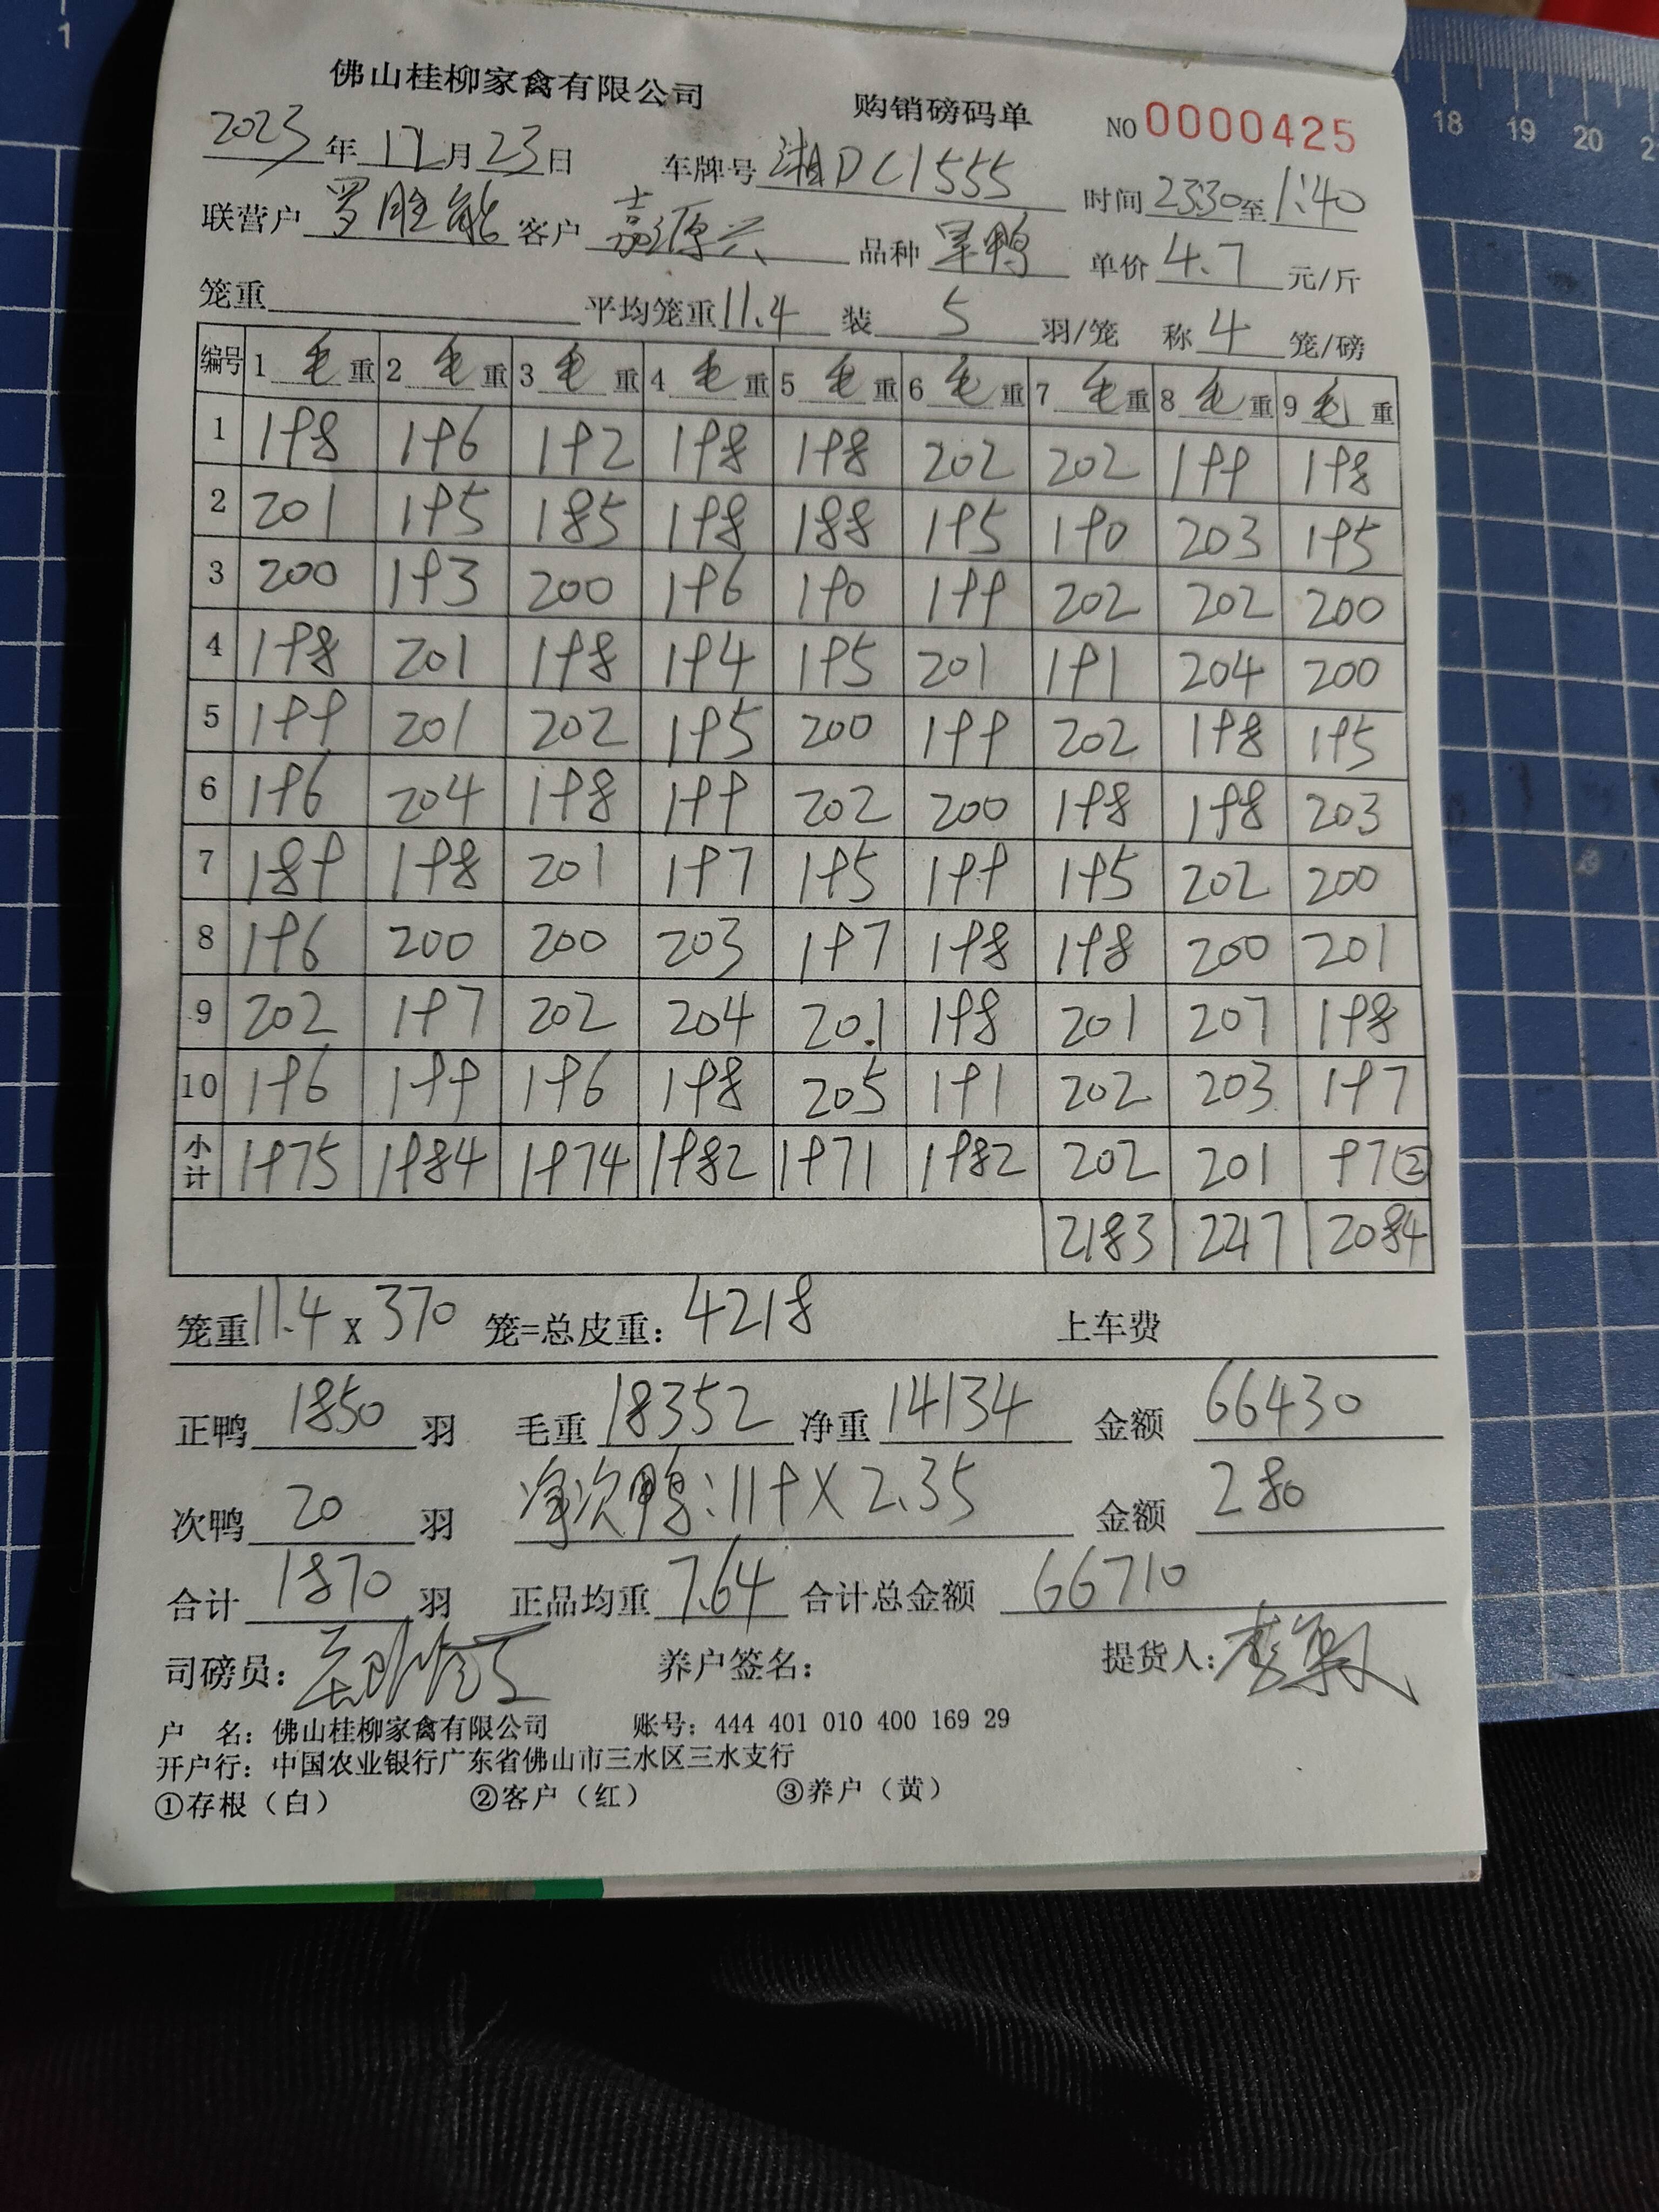 佛山桂柳家禽有限公司 购销磅码单 NO 0000425
2023年12月23日 车牌号 湘DC1555 时间 2330至1:40
联营户 罗胜能 客户 嘉源兴 品种 旱鸭 单价 4.7 元/斤
笼重 平均笼重 11.4 装 5 羽/笼 称 4 笼/磅
编号 1 毛重 2 毛重 3 毛重 4 毛重 5 毛重 6 毛重 7 毛重 8 毛重 9 毛重
1 198 196 192 198 198 202 202 199 198
2 201 195 185 198 188 195 190 203 195
3 200 193 200 196 190 199 202 202 200
4 198 201 198 194 195 201 191 204 200
5 199 201 202 195 200 199 202 198 195
6 196 204 198 199 202 200 198 198 203
7 189 198 201 197 195 199 195 202 200
8 196 200 200 203 197 198 198 200 201
9 202 197 202 204 201 198 201 207 198
10 196 199 196 198 205 191 202 203 197
小计 1975 1984 1974 1982 1971 1982 202 201 97②
2183 2217 2084
笼重 11.4 x 370 笼=总皮重: 4218 上车费
正鸭 1850 羽 毛重 18352 净重 14134 金额 66430
次鸭 20 羽 净次鸭:119X2.35 金额 280
合计 1870 羽 正品均重 7.64 合计总金额 66710
司磅员: 养户签名: 提货人:
户 名: 佛山桂柳家禽有限公司 账号: 444 401 010 400 169 29
开户行: 中国农业银行广东省佛山市三水区三水支行
①存根（白） ②客户（红） ③养户（黄）
1 18 19 20 2